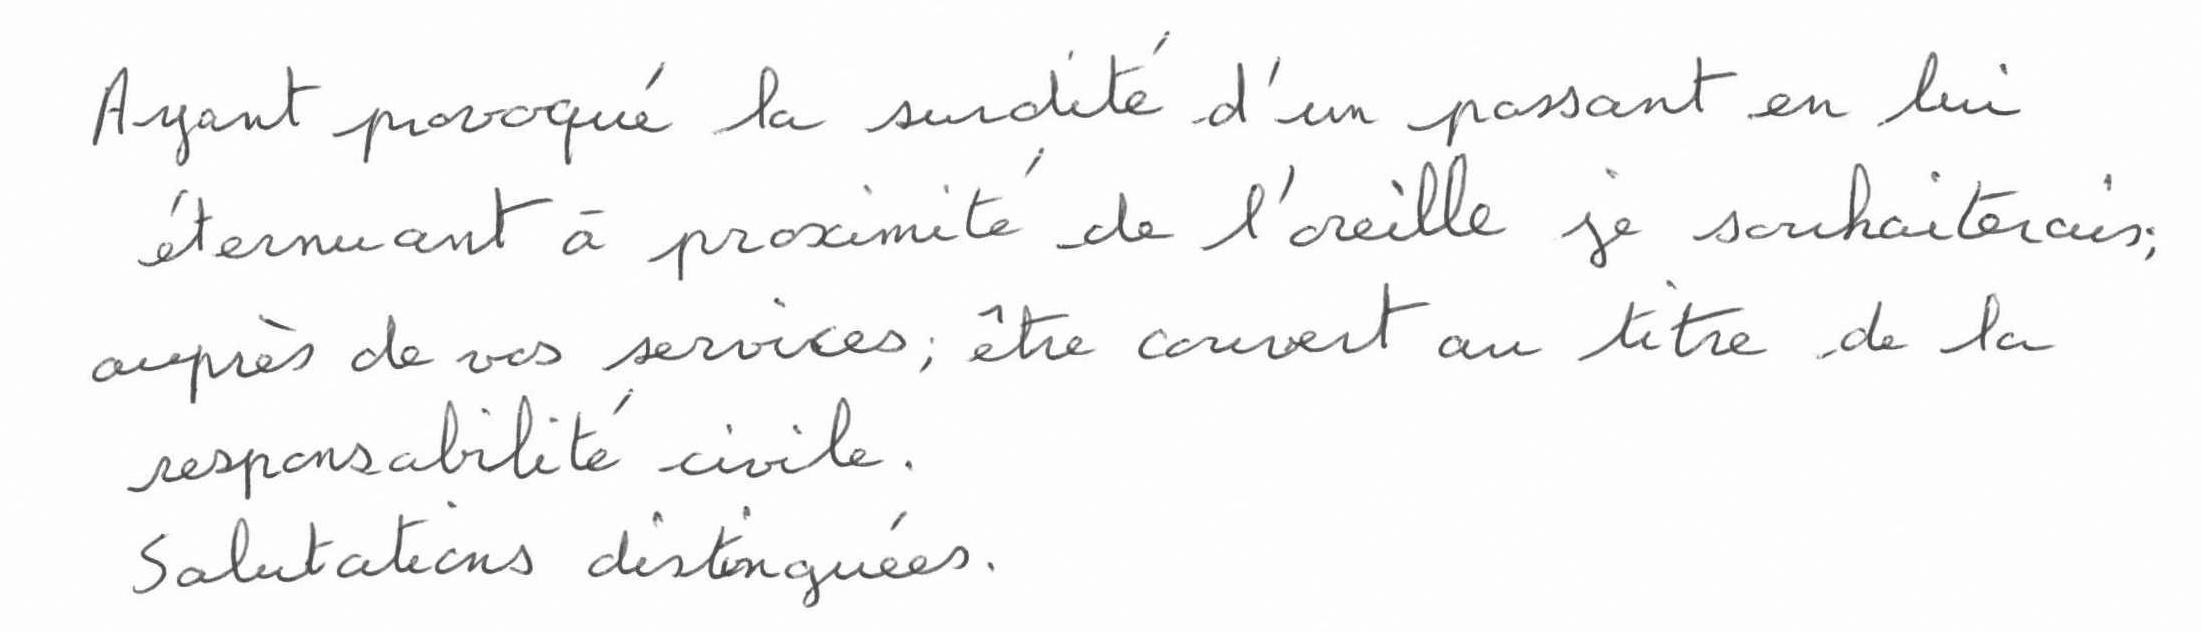 Ayant provoqué la surdité d'un passant en lui
éternuant à proximité de l'oreille je souhaiterais;
auprès de vos services; être couvert au titre de la
responsabilité civile.
Salutations distinguées.